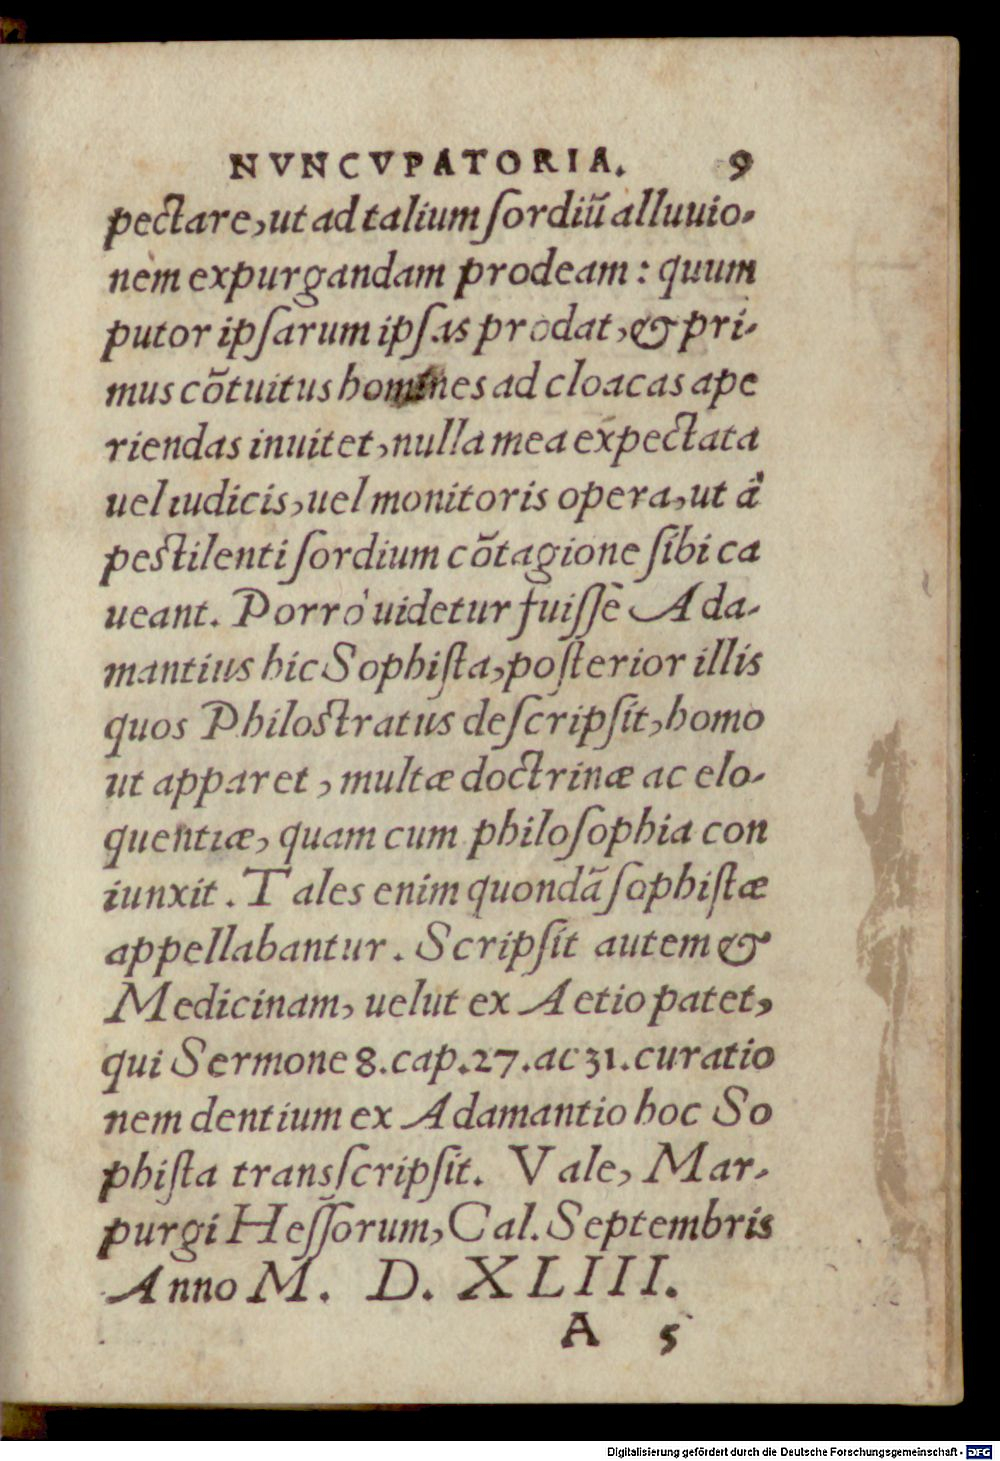 NVNCVPATORIA. 9
pectare, ut ad talium ſordiũ alluuio-
nem expurgandam prodeam: quum
putor ipſarum ipſas prodat, & pri-
mus cõtuitus homines ad cloacas ape
riendas inuitet, nulla mea expectata
uel iudicis, uel monitoris opera, ut à
peſtilenti ſordium cõtagione ſibi ca
ueant. Porrò uidetur fuiſſe Ada-
mantius hic Sophiſta, poſterior illis
quos Philoſtratus deſcripſit, homo
ut apparet, multæ doctrinæ ac elo-
quentiæ, quam cum philoſophia con
iunxit. Tales enim quondã ſophiſtæ
appellabantur. Scripſit autem &
Medicinam, uelut ex Aetio patet,
qui Sermone 8. cap. 27. ac 31. curatio
nem dentium ex Adamantio hoc So
phiſta transſcripſit. Vale, Mar-
purgi Heſſorum, Cal. Septembris
Anno M. D. XLIII.
A 5
Digitalisierung gefördert durch die Deutsche Forschungsgemeinschaft - DFG